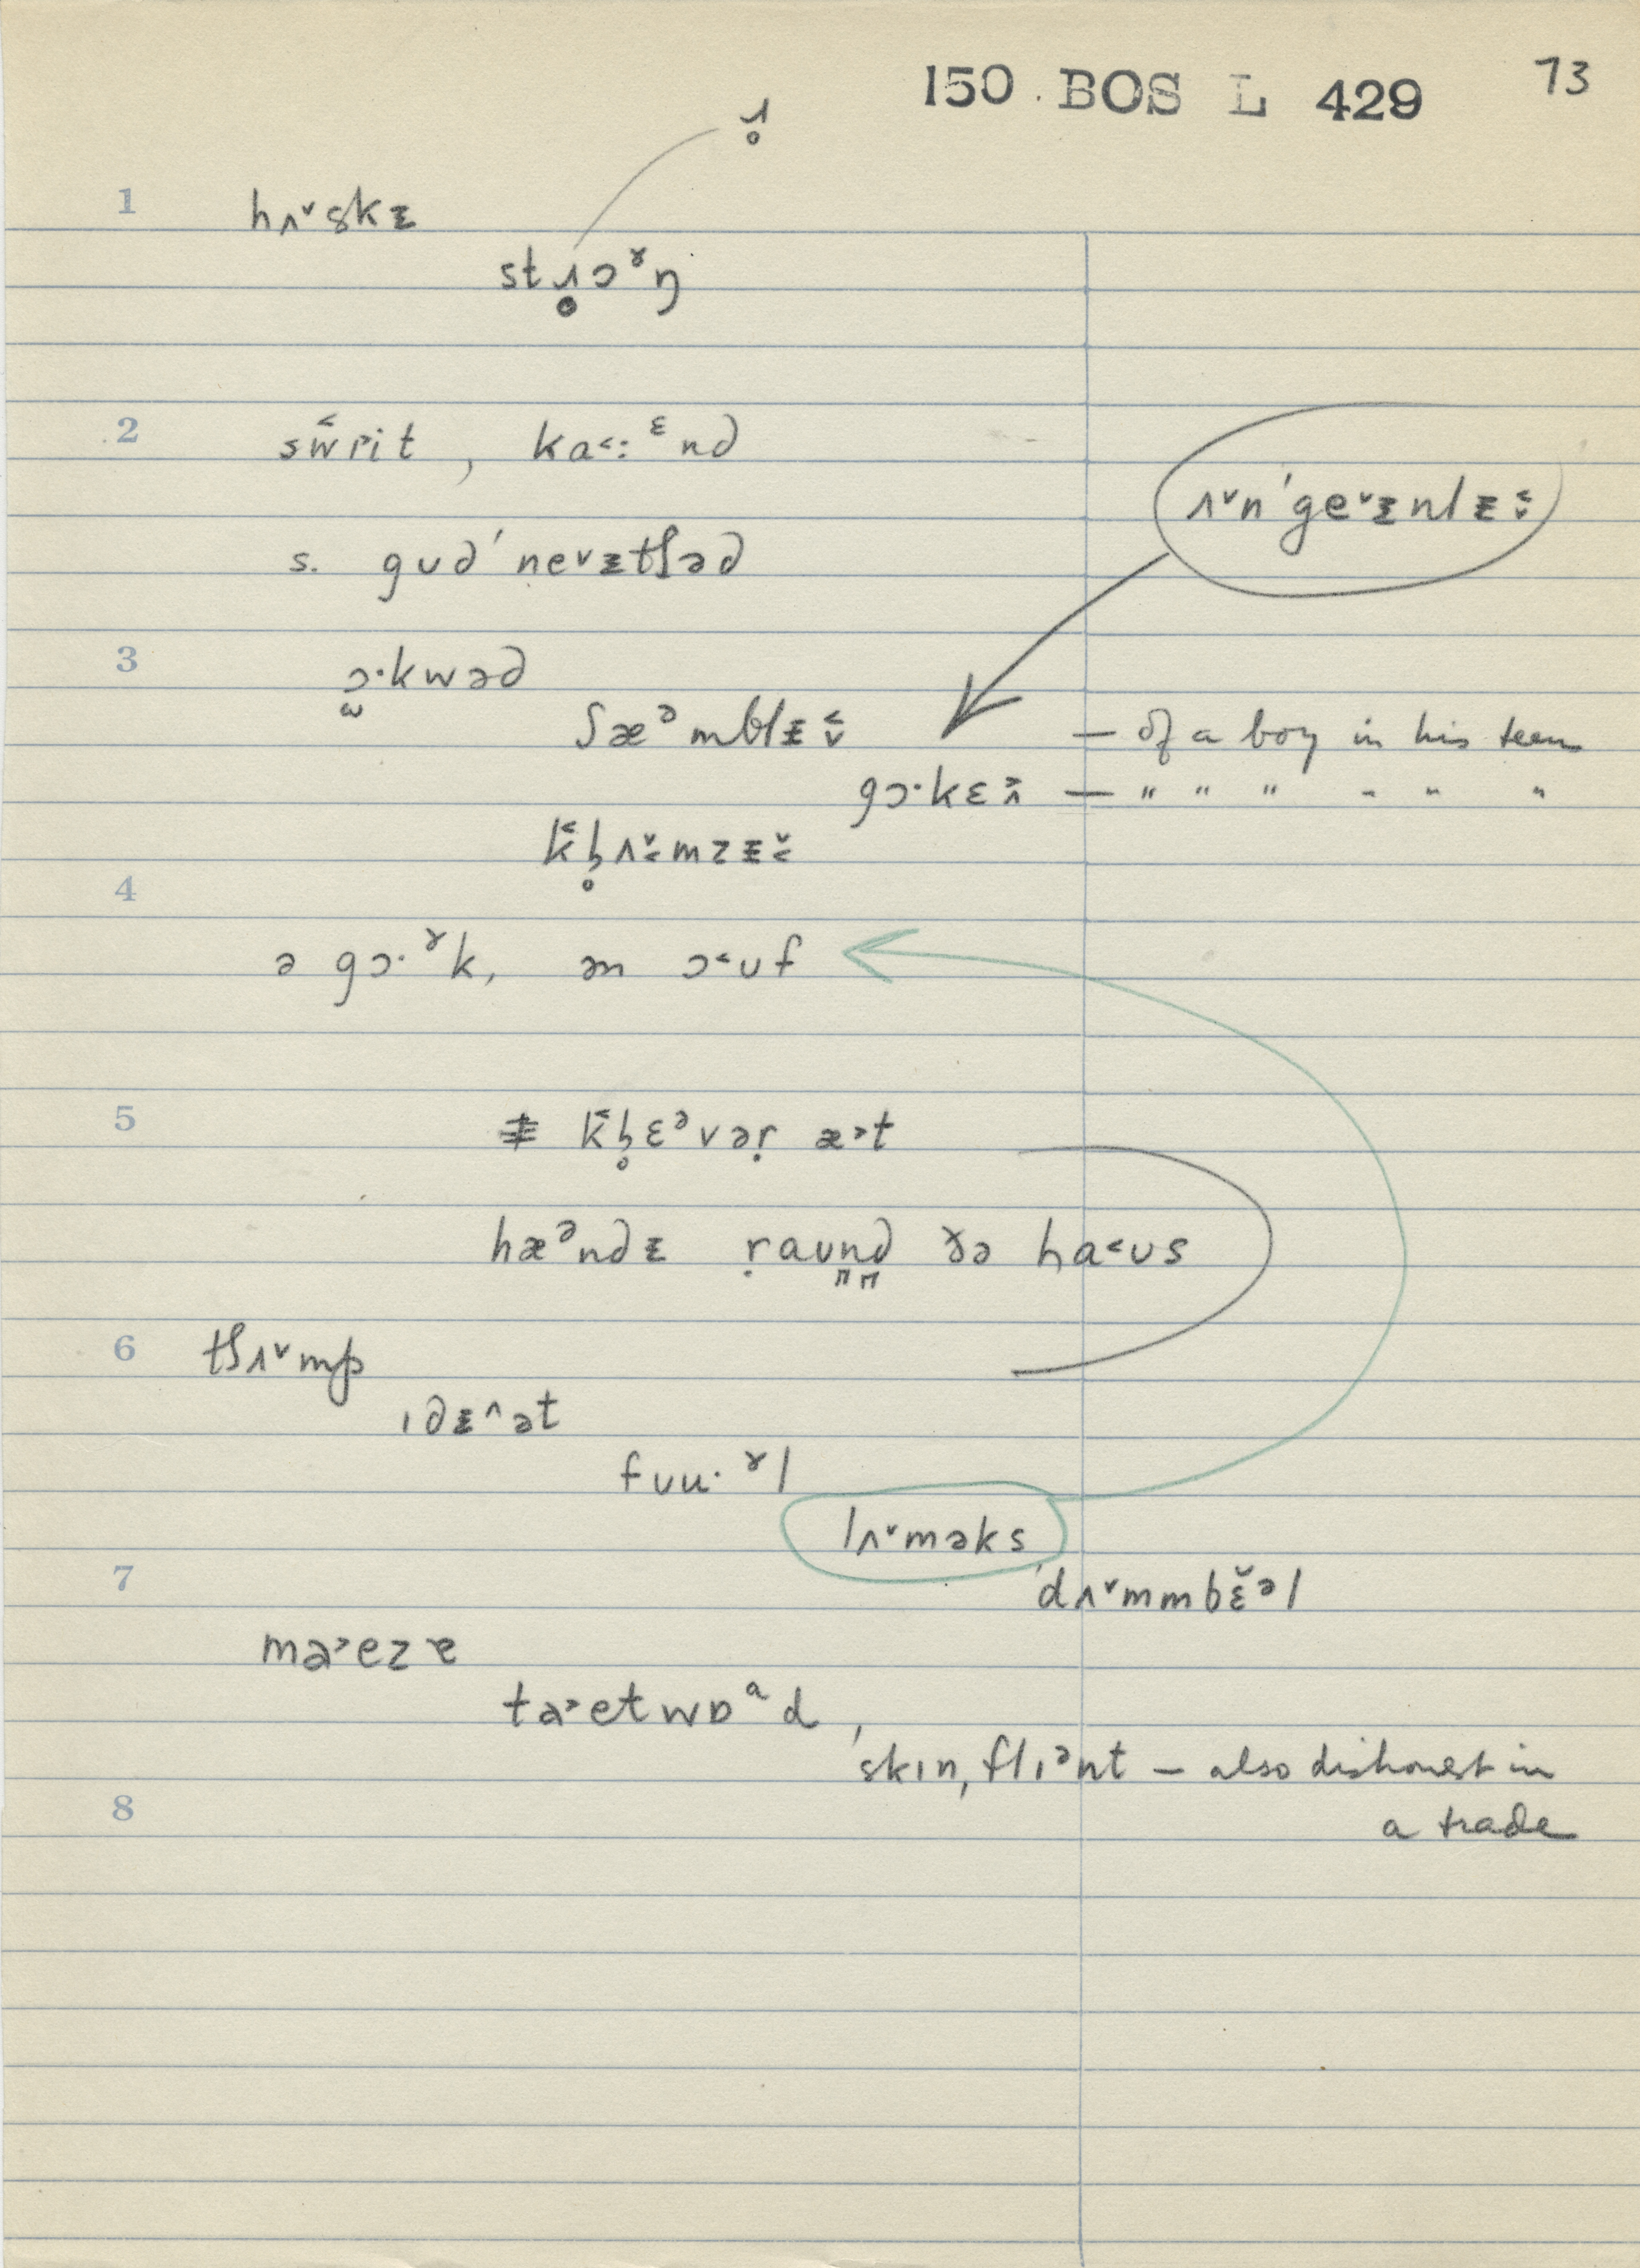 150 . BOS L 429 73
ɹ̥
1 hʌ˅skᵻ
stɹ̥ɔˠŋ
2 sw̆rit , ka˂:ᵋnd
ʌ˅n'ge˅ᵻnlᵻ˂˅
s. gʊd'ne˅ᵻtʃəd
3 ɔ̫·kwəd
ʃæᵊmblᵻ˂˅ — of a boy in his teens
gɔ·kɛ — " " " " " "
kl̥ʌ˅mzᵻ˅
4
ə gɔ·ˠk, ən ɔ˂ʊf
5 kl̥ɛᵊvəṛ æ˃t
hæᵊndᵻ ṛaʊn̪d̪ ðə ha˂ʊs
6 tʃʌ˅mp
ɪdᵻ˄ət
fʊu·ˠl
lʌ˅məks
7 'dʌ˅mmbɛ̆ᵊl
ma˃ezɐ
ta˃etwɒᵃd ,
'skɪn,flɪᵊnt — also dishonest in
8 a trade